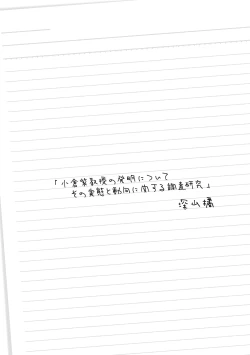 「小倉紫教授の発明について
その実態と動向に関する調査研究」
深山橘